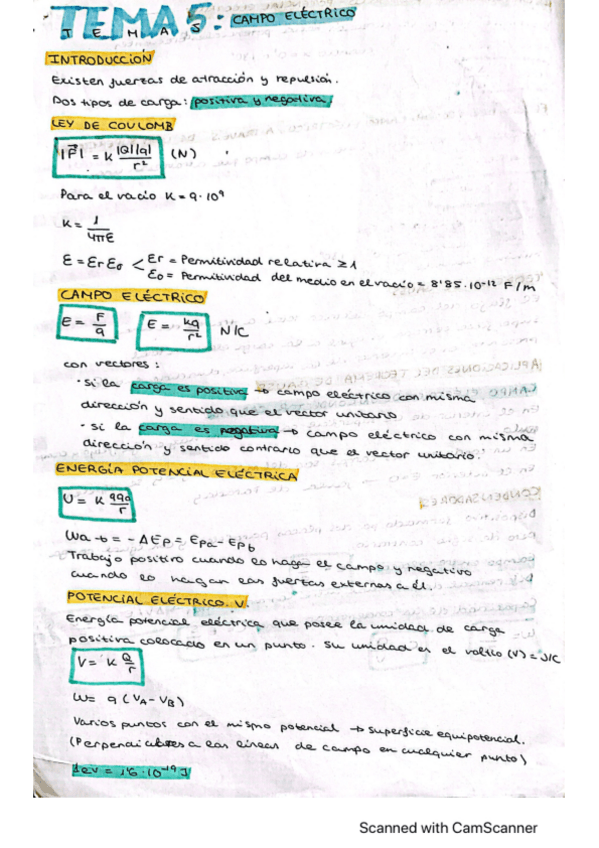 TEMA 5: CAMPO ELÉCTRICO
T E M A S
INTRODUCCIÓN
Existen fuerzas de atracción y repulsión.
Dos tipos de carga: positiva y negativa
LEY DE COULOMB
|F⃗| = K |Q||q| / r² (N)
Para el vacío K = 9·10⁹
K = 1 / 4πε
ε = εr ε0 < εr = Permitividad relativa ≥ 1
ε0 = Permitividad del medio en el vacío = 8'85·10⁻¹² F/m
CAMPO ELÉCTRICO
E = F/q   E = kq/r² N/C
con vectores:
· si la carga es positiva → campo eléctrico con misma
dirección y sentido que el vector unitario
· si la carga es negativa → campo eléctrico con misma
dirección y sentido contrario que el vector unitario.
ENERGÍA POTENCIAL ELÉCTRICA
U = K qq0 / r
Wa-b = -ΔEp = Epa - Epb
Trabajo positivo cuando lo hagan el campo y negativo
cuando lo hagan las fuerzas externas a él.
POTENCIAL ELÉCTRICO. V.
Energía potencial eléctrica que posee la unidad de carga
positiva colocado en un punto. Su unidad es el voltio (V) = J/C
V = K Q/r
W = q (VA - VB)
Varios puntos con el mismo potencial → superficie equipotencial.
(Perpendiculares a las líneas de campo en cualquier punto)
1eV = 1'6·10⁻¹⁹ J
Scanned with CamScanner